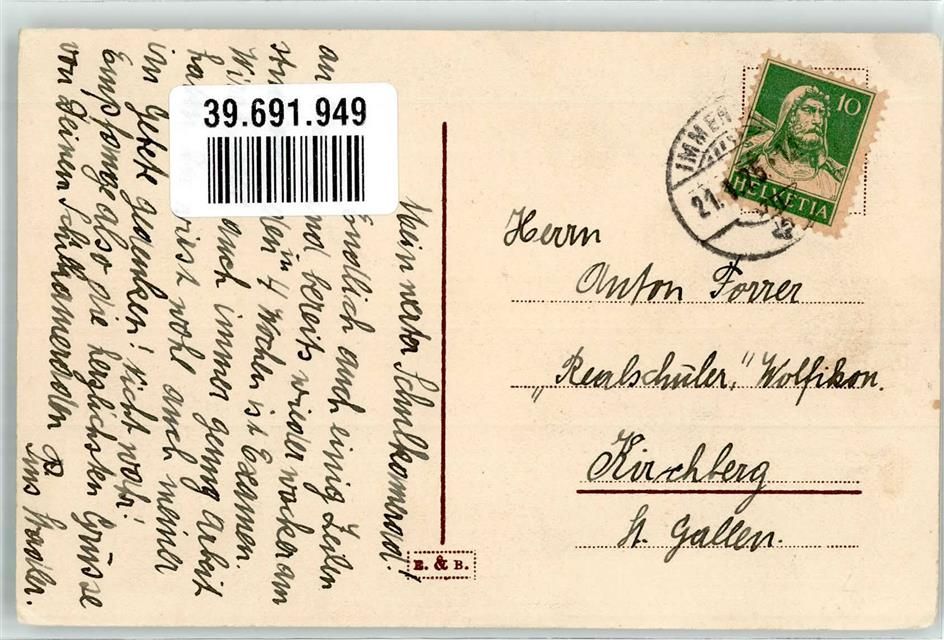 Mein werter Schulkamerad!
Endlich auch einig Zeilen
an
sind bereits wieder wacker am
in 4 Wochen ist Examen.
auch immer genug Arbeit
wirst wohl auch meiner
im Gebete gedenken! Nicht wahr!
Empfange also die herzlichsten Grüsse
von Deinem Schulkameraden
39.691.949
10
HELVETIA
IMMEN
21.
Herrn
Anton Forrer
„Realschüler," Wolfikon.
Kirchberg
St. Gallen.
E. & B.